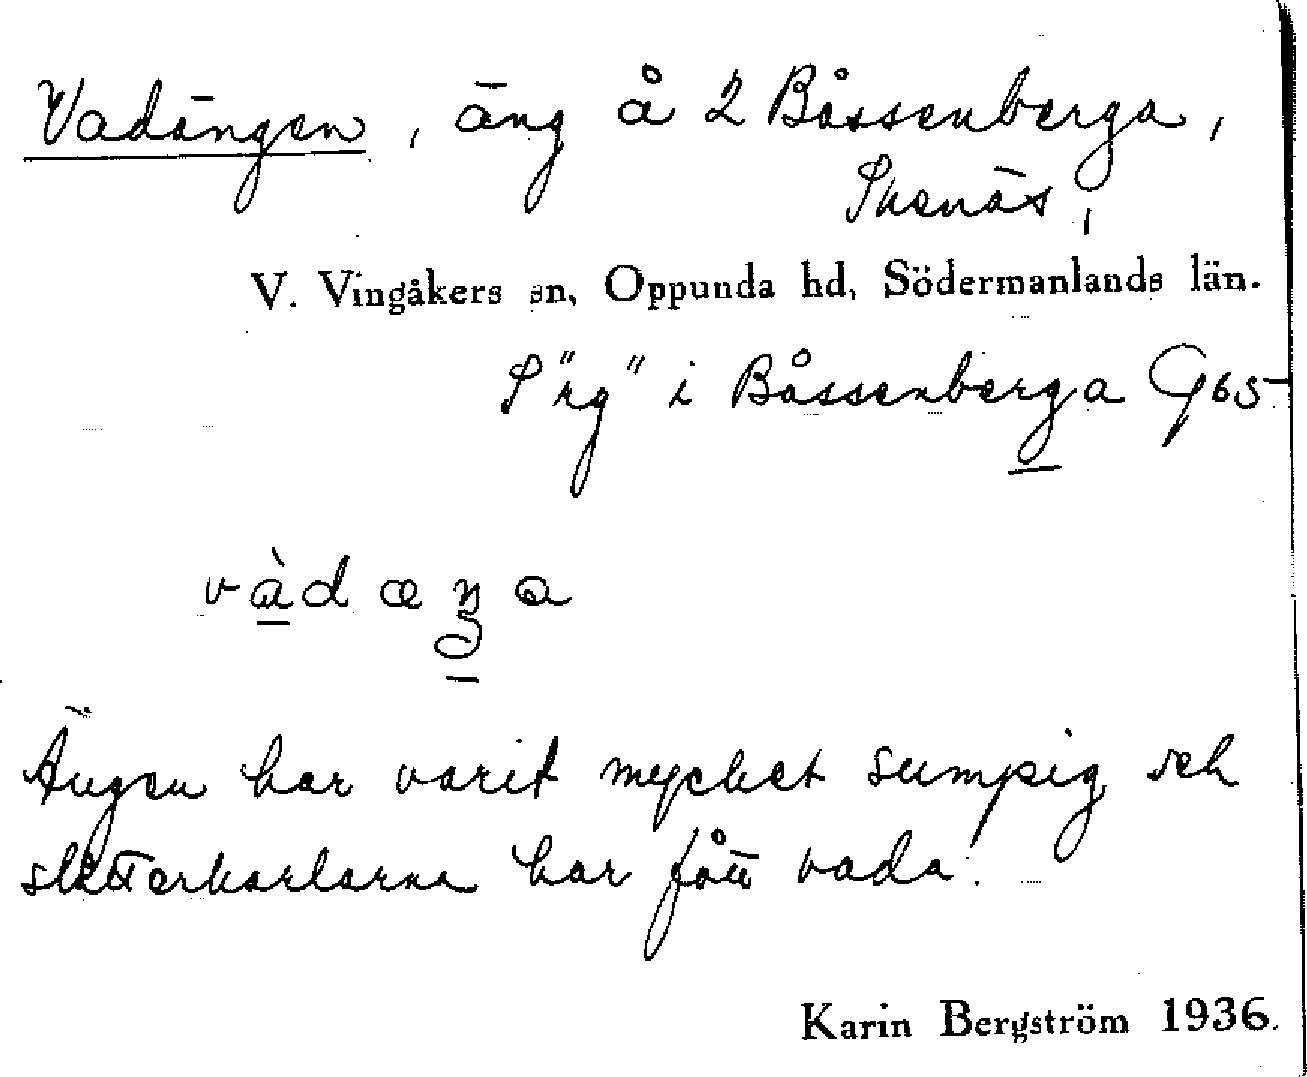 Vadängen, äng å 2 Båssenberga,
Skenäs,
V. Vingåkers sn, Oppunda hd, Södermanlands län.
S "rg" i Båssenberga G 65
Ängen har varit mycket sumpig och
slåtterkarlarna har fått vada.
Karin Bergström 1936.